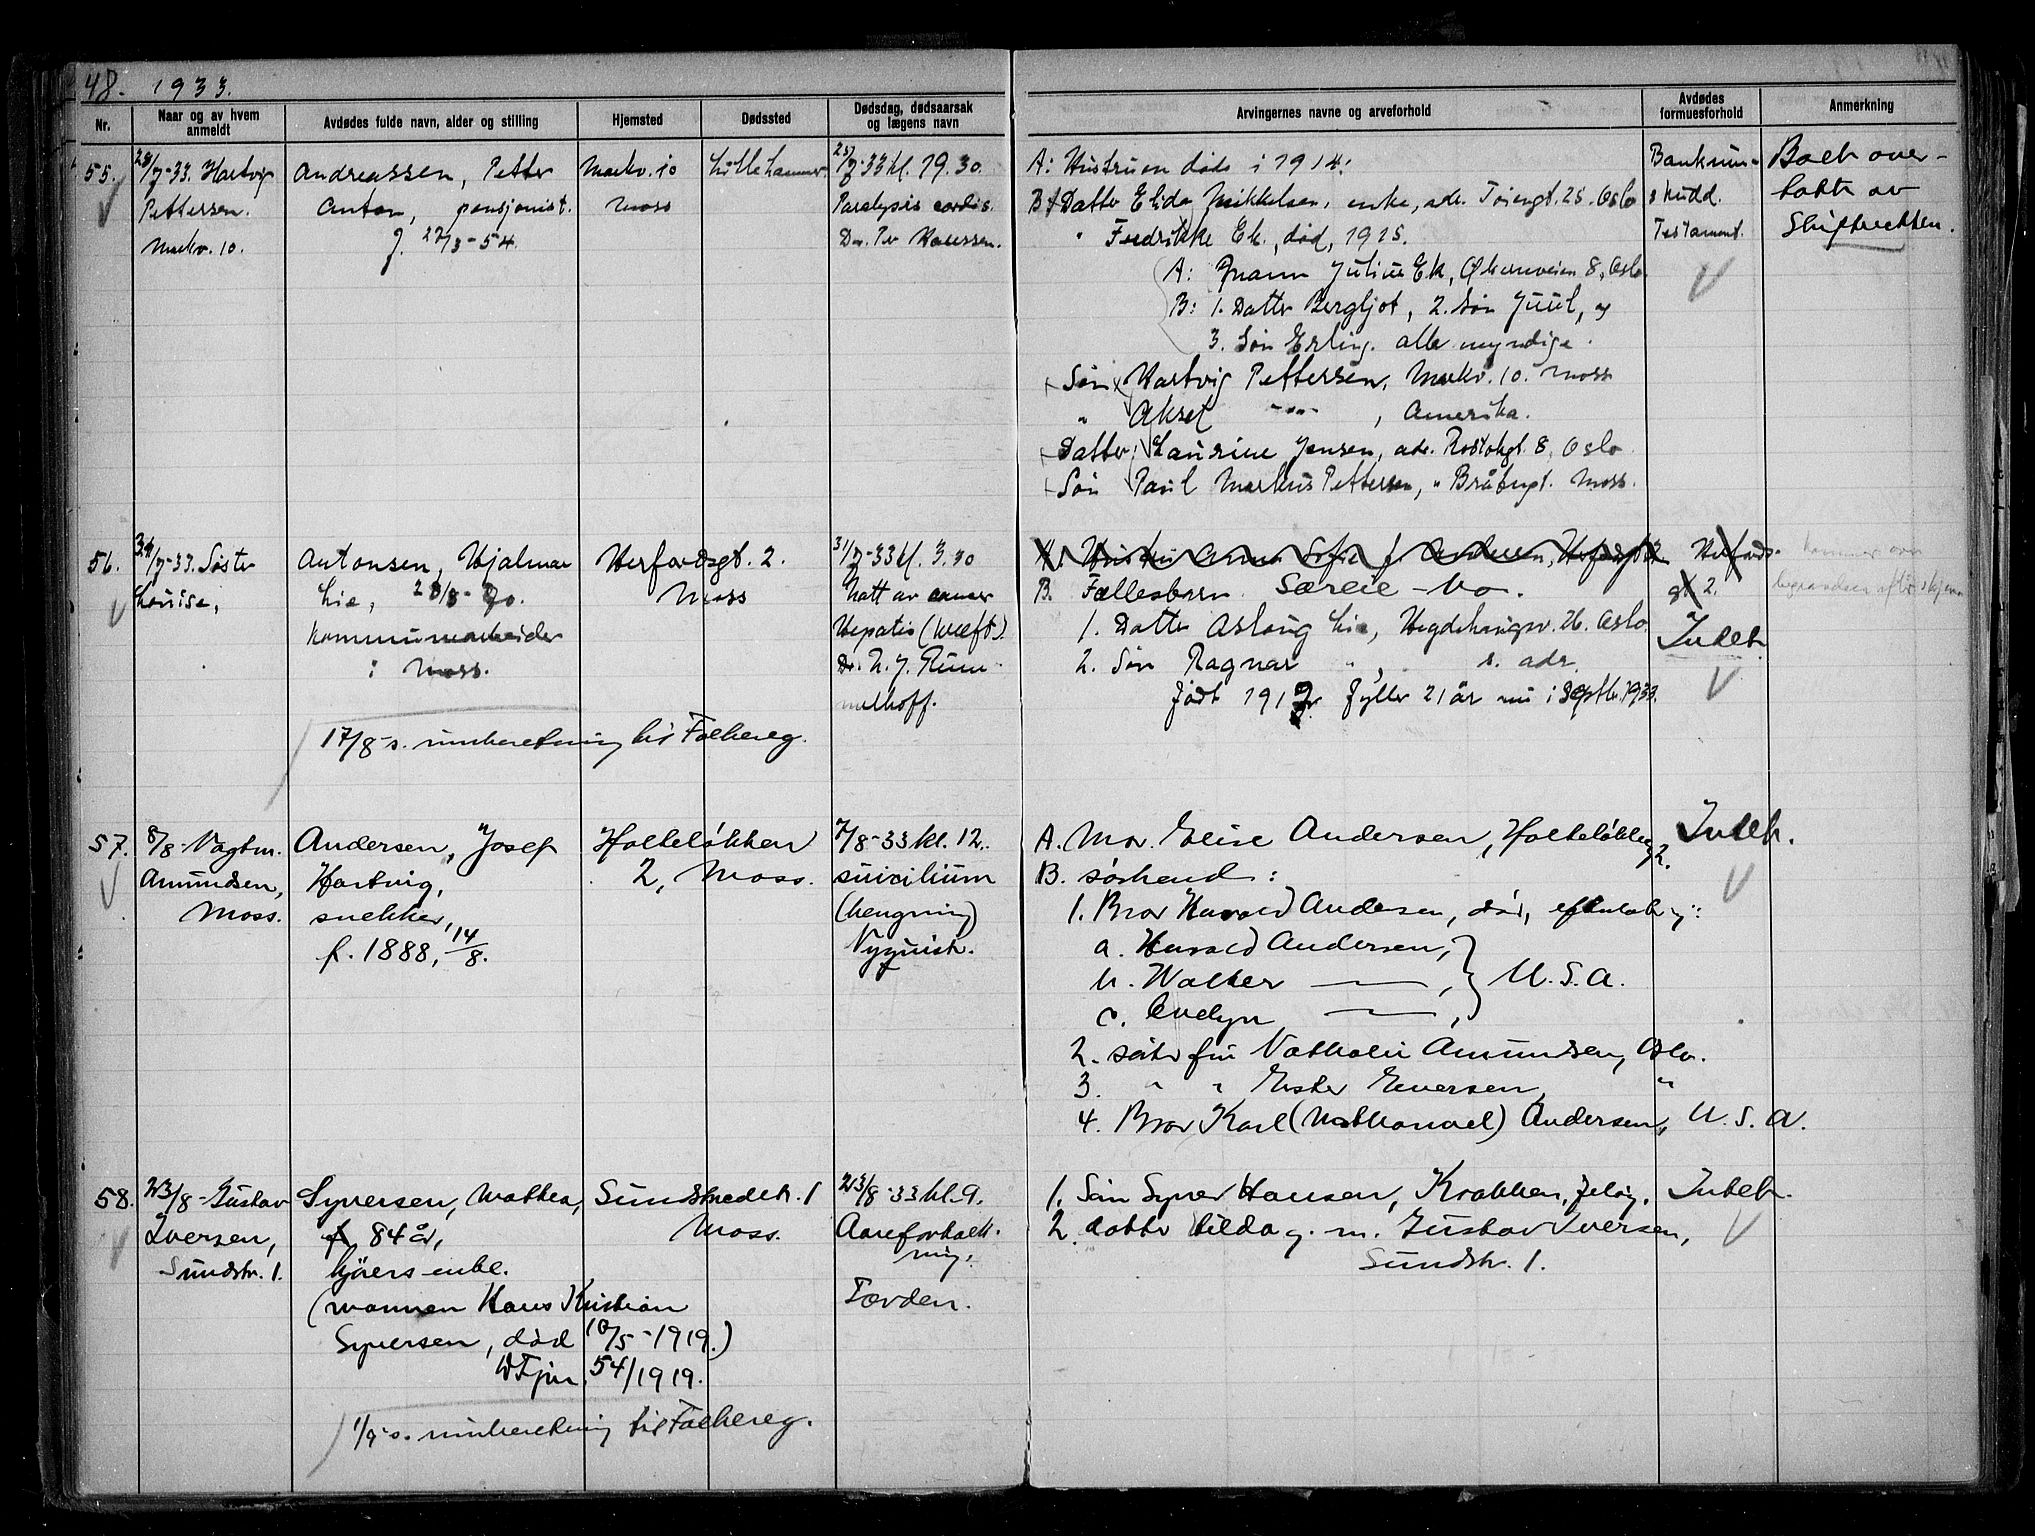 48. 1933.
Nr.
Naar og av hvem anmeldt
Avdødes fulde navn, alder og stilling
Hjemsted
Dødssted
Dødsdag, dødsaarsak og lægens navn
Arvingernes navne og arveforhold
Avdødes formuesforhold
Anmerkning
55.
28/7-33. Hartvig
Pettersen.
Markv. 10.
Andreassen, Petter
Anton, pensjonist.
f. 27/3-54.
Markv. 10
Moss
Lillehammer
25/7-33 kl. 19.30.
Paralysis cordis.
Dr. Per Hanssen.
A: Hustruen døde i 1914.
B: Datter Elida Mikkelsen, enke, adr. Tøiengt. 25. Oslo
" Fredrikke Ek, død, 1915.
A: Mann Julius Ek, Økernveien 8, Oslo
B: 1. Datter Bergljot, 2. Søn Juul, og
3. Søn Erling. alle myndige.
Søn Hartvig Pettersen, Markv. 10. Moss
" Aksel -"- , Amerika.
Datter Laurine Jensen, adr. Rostokgt. 8, Oslo
Søn Paul Markus Pettersen, " Bråtengt. Moss.
Bankinn-
skudd.
Testament.
Boet over-
tatt av
Skifteretten.
56.
31/7-33. Søster
Louise,
Antonsen, Hjalmar
Lie, 28/8-70.
Kommunearbeider
i Moss.
Herfordsgt. 2.
Moss
31/7-33 kl. 3.30
Natt av cancer
Hepatis (kreft).
Dr. N. J. Rum-
melhoff.
A. Hustru Anna Sofie f. Andersen, Herfordsgt. 2.
B. Fællesbarn. Særeie - bo.
1. Datter Aslaug Lie, Hegdehaugsv. 26. Oslo.
2. Søn Ragnar " , s. adr.
født 1912 fyller 21 år nu i Septbr. 1933.
Herfords-
gt. 2.
Intet.
17/8 s. underretning til Folkereg.
57.
8/8-Vagtm.
Amundsen,
Moss.
Andersen, Josef
Hartvig,
snekker,
f. 1888, 14/8.
Holteløkken
2, Moss.
7/8-33 kl. 12.
suicidium
(hengning)
Nyquist.
A. Mor Elise Andersen, Holteløkken 2.
B. søskend:
1. Bror Harald Andersen, død, efterlot sig:
a. Harald Andersen,
b. Walter —— , } U.S.A.
c. Evelyn —— ,
2. søster fru Nathalie Amundsen, Oslo.
3. " " Ester Eversen, "
4. Bror Karl (Nathanael) Andersen, U.S.A.
Intet.
58.
23/8-Gustav
Iversen,
Sundstr. 1.
Syversen, Mathea,
84 år,
kjørers enke.
(mannen Hans Kristian
Syversen, død 10/5-1919.)
Dfpr. 54/1919.
Sundstredet. 1
Moss.
23/8-33 kl. 9.
Aareforkalk-
ning.
Torden.
1. Søn Syver Hansen, Krakken, Jeløy.
2. datter Hilda g. m. Gustav Iversen,
Sundstr. 1.
Intet.
1/9 s. underretning til Folkereg.